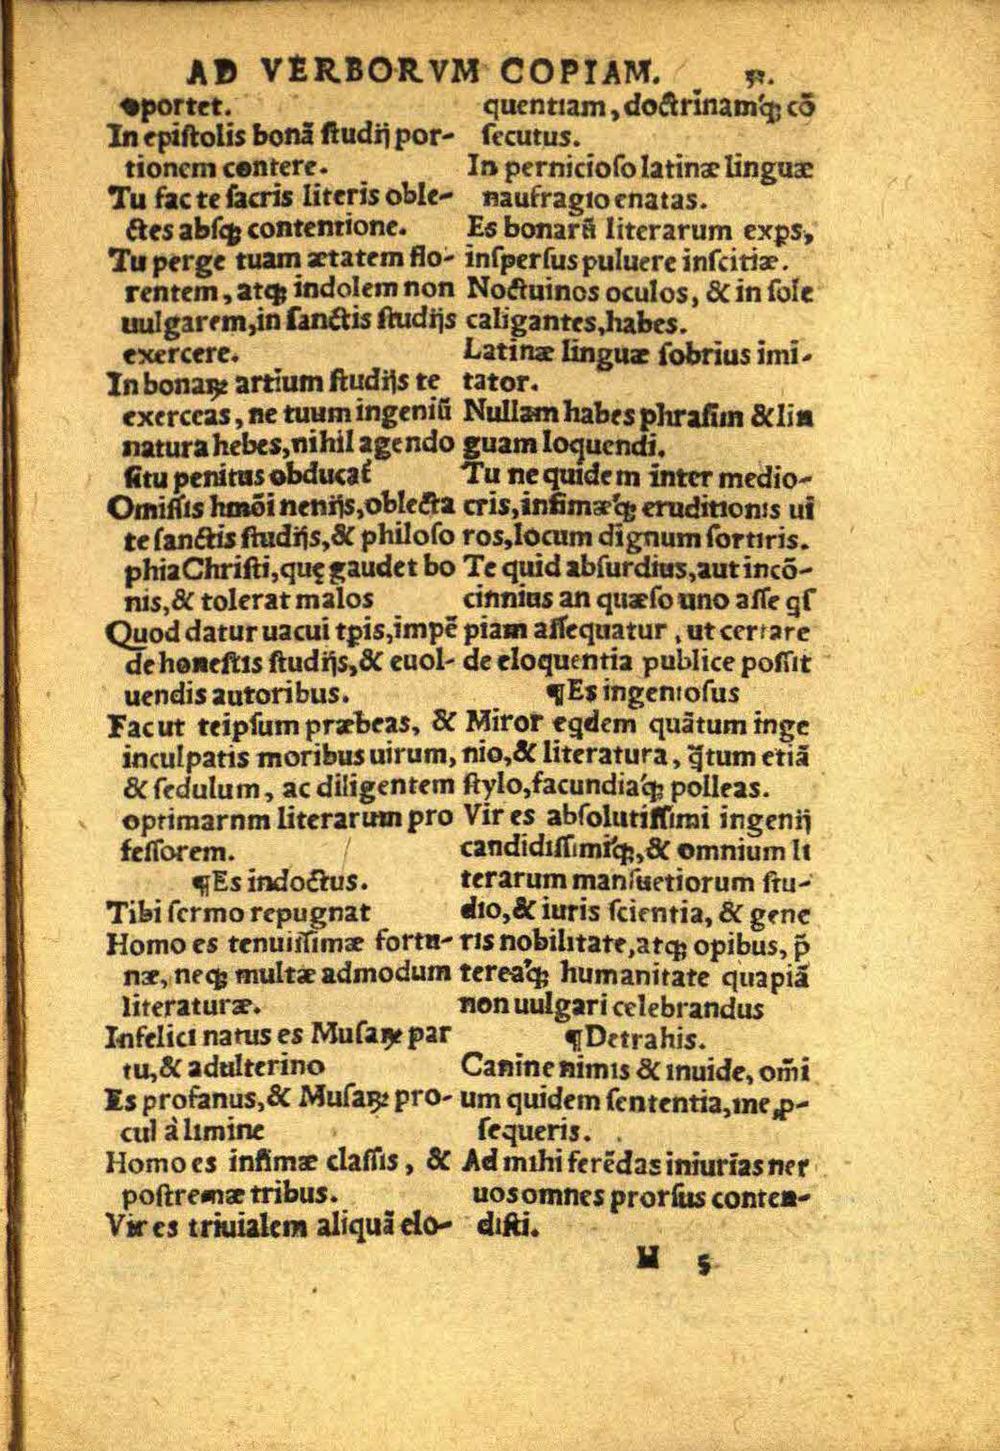 AD VERBORVM COPIAM. 57.
oportet.
In epiſtolis bonā ſtudij por-
tionem contere.
Tu fac te ſacris literis oble-
ctes abſqꝫ contentione.
Tu perge tuam ætatem flo-
rentem, atqꝫ indolem non
uulgarem, in ſanctis ſtudijs
exercere.
In bonaꝝ artium ſtudijs te
exerceas, ne tuum ingeniū
natura hebes, nihil agendo
ſitu penitus obducat́
Omiſſis hmōi nenijs, oblecta
te ſanctis ſtudijs, & philoſo
phia Chriſti, quę gaudet bo
nis, & tolerat malos
Quod datur uacui tpis, impē
de honeſtis ſtudijs, & euol-
uendis autoribus.
Fac ut teipſum præbeas, &
inculpatis moribus uirum,
& ſedulum, ac diligentem
optimarnm literarum pro
feſſorem.
¶Es indoctus.
Tibi ſermo repugnat
Homo es tenuiſſimæ fortu-
næ, neqꝫ multæ admodum
literaturæ.
Infelici natus es Muſaꝝ par
tu, & adulterino
Es profanus, & Muſaꝝ pro-
cul à limine
Homo es infimæ claſſis, &
poſtremæ tribus.
Vir es triuialem aliquā elo-
quentiam, doctrinamq́ꝫ cō
ſecutus.
In pernicioſo latinæ linguæ
naufragio enatas.
Es bonarū literarum exps,
inſperſus puluere inſcitiæ.
Noctuinos oculos, & in ſole
caligantes, habes.
Latinæ linguæ ſobrius imi-
tator.
Nullam habes phraſim & lin
guam loquendi.
Tu ne quidem inter medio-
cris, infimæq́ꝫ eruditionis ui
ros, locum dignum ſortiris.
Te quid abſurdius, aut incō-
cinnius an quæſo uno aſſe qſ
piam aſſequatur, ut certare
de eloquentia publice poſſit
¶Es ingenioſus
Miror eqdem quātum inge
nio, & literatura, q̄tum etiā
ſtylo, facundiaq́ꝫ polleas.
Vir es abſolutiſſimi ingenij
candidiſſimiq́ꝫ, & omnium li
terarum manſuetiorum ſtu-
dio, & iuris ſcientia, & gene
ris nobilitate, atqꝫ opibus, p̄
tereaq́ꝫ humanitate quapiā
non uulgari celebrandus
¶Detrahis.
Canine nimis & inuide, om̄i
um quidem ſententia, me ꝓ-
ſequeris.
Ad mihi ferēdas iniurias ner
uos omnes prorſus conten-
diſti.
H 5